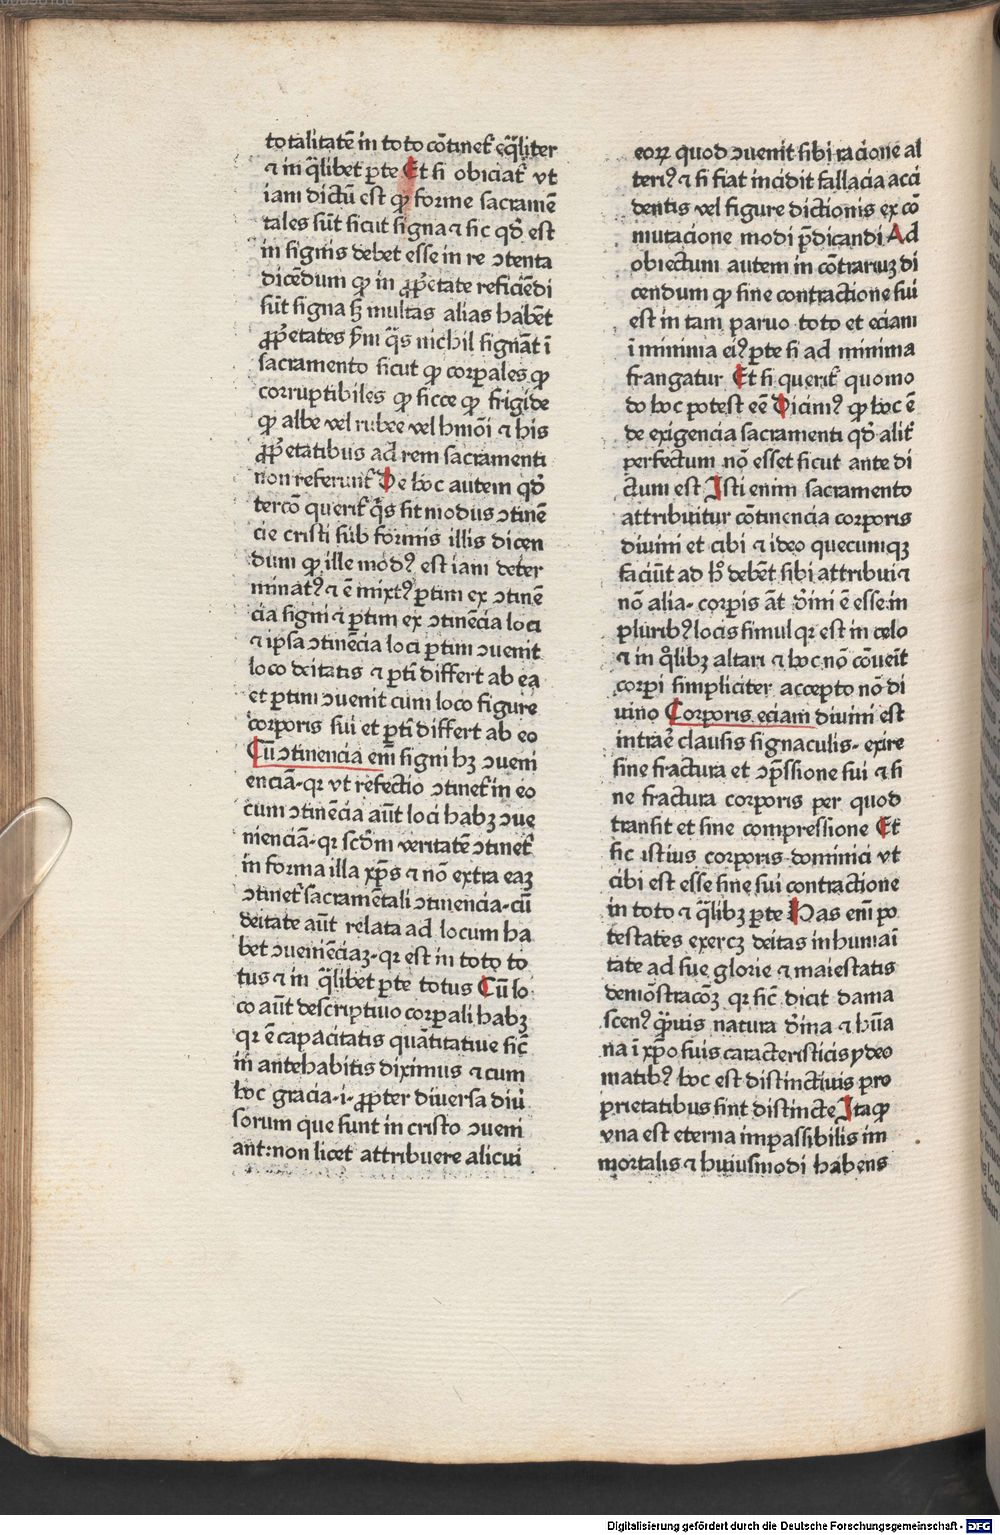 totalitatē in toto cōtinet᷑ eq̄liter
⁊ in q̄libet ꝑte Et si obiciat᷑ vt
iam dictū est ꝙ forme sacramē
tales sūt sicut signa ⁊ sic qd̄ est
in signis debet esse in re ↄtenta
dicēdum ꝙ in ꝓp̄etate reficiēdi
sūt signa sꝫ multas alias habēt
ꝓp̄etates
sacramento sicut ꝙ corꝑales ꝙ
corruptibiles ꝙ sicce ꝙ frigide
ꝙ albe vel rubee vel hmōi ⁊ his
ꝓp̄etatibus ad rem sacramenti
non referunt᷑ De hoc autem qd̄
tercō querit᷑ q̄s sit modus ↄtinē
cie cristi sub formis illis dicen
dum ꝙ ille modꝰ est iam deter
minatꝰ ⁊ ē mixtꝰ ꝑtim ex ↄtinē
cia signi ⁊ ꝑtim ex ↄtinēcia loci
⁊ ipsa ↄtinēcia loci ꝑtim ↄuenit
loco deitatis ⁊ ꝑti differt ab ea
et ꝑtim ↄuenit cum loco figure
corporis sui et ꝑti differt ab eo
Cū ↄtinencia em̄ signi hꝫ ↄueni
enciā. qꝛ vt refectio ↄtinet᷑ in eo
cum ↄtinēcia aūt loci habꝫ ↄue
nienciā. qꝛ scd̄m veritatē ↄtinet᷑
in forma illa xp̄s ⁊ nō extra eaꝫ
ↄtinet᷑ sacramētali ↄtinencia. cū
deitate aūt relata ad locum ha
bet ↄueniēciaꝫ. qꝛ est in toto to
tus ⁊ in q̄libet ꝑte totus Cū lo
co aūt descriptiuo corꝑali habꝫ
qꝛ ē capacitatis quātitatiue sic̄
in antehabitis diximus ⁊ cum
hoc gracia. i. ꝓpter diuersa diu
sorum que sunt in cristo ↄueni
ant: non licet attribuere alicui
eoꝝ quod ↄuenit sibi racione al
teriꝰ ⁊ si fiat incidit fallacia acci
dentis vel figure dictionis ex cō
mutacione modi p̄dicandi Ad
obiectum autem in cōtrariuꝫ di
cendum ꝙ sine contractione sui
est in tam paruo toto et eciam
ī minima eiꝰ ꝑte si ad minima
frangatur Et si querit᷑ quomo
do hoc potest eē Dicimꝰ ꝙ hoc ē
de exigencia sacramenti qd̄ alit᷑
perfectum nō esset sicut ante di
ctum est Isti enim sacramento
attribuitur cōtinencia corporis
diuini et cibi ⁊ ideo quecumqꝫ
faciūt ad h̊ debēt sibi attribui ⁊
nō alia. corꝑis āt d̄ini ē esse in
pluribꝰ locis simul qꝛ est in celo
⁊ in q̊libꝫ altari ⁊ hoc nō cōueīt
corꝑi simpliciter accepto nō di
uino Corporis eciam diuini est
intrae᷑ clausis signaculis. exire
sine fractura et ↄp̄ssione sui ⁊ si
ne fractura corporis per quod
transit et sine compressione Et
sic istius corporis dominici vt
cibi est esse sine sui contractione
in toto ⁊ q̄libꝫ ꝑte Has em̄ po
testates exercꝫ deitas in humaī
tate ad sue glorie ⁊ maiestatis
demōstracōꝫ qꝛ sic̄ dicit dama
scenꝰ q̄uis natura d̄ina ⁊ hūa
na ī xp̄o suis caracteristicis ydeo
matibꝰ hoc est distinctiuis pro
prietatibus sint distincte Itaqꝫ
vna est eterna impassibilis im
mortalis ⁊ huiusmodi habens
Digitalisierung gefördert durch die Deutsche Forschungsgemeinschaft - DFG